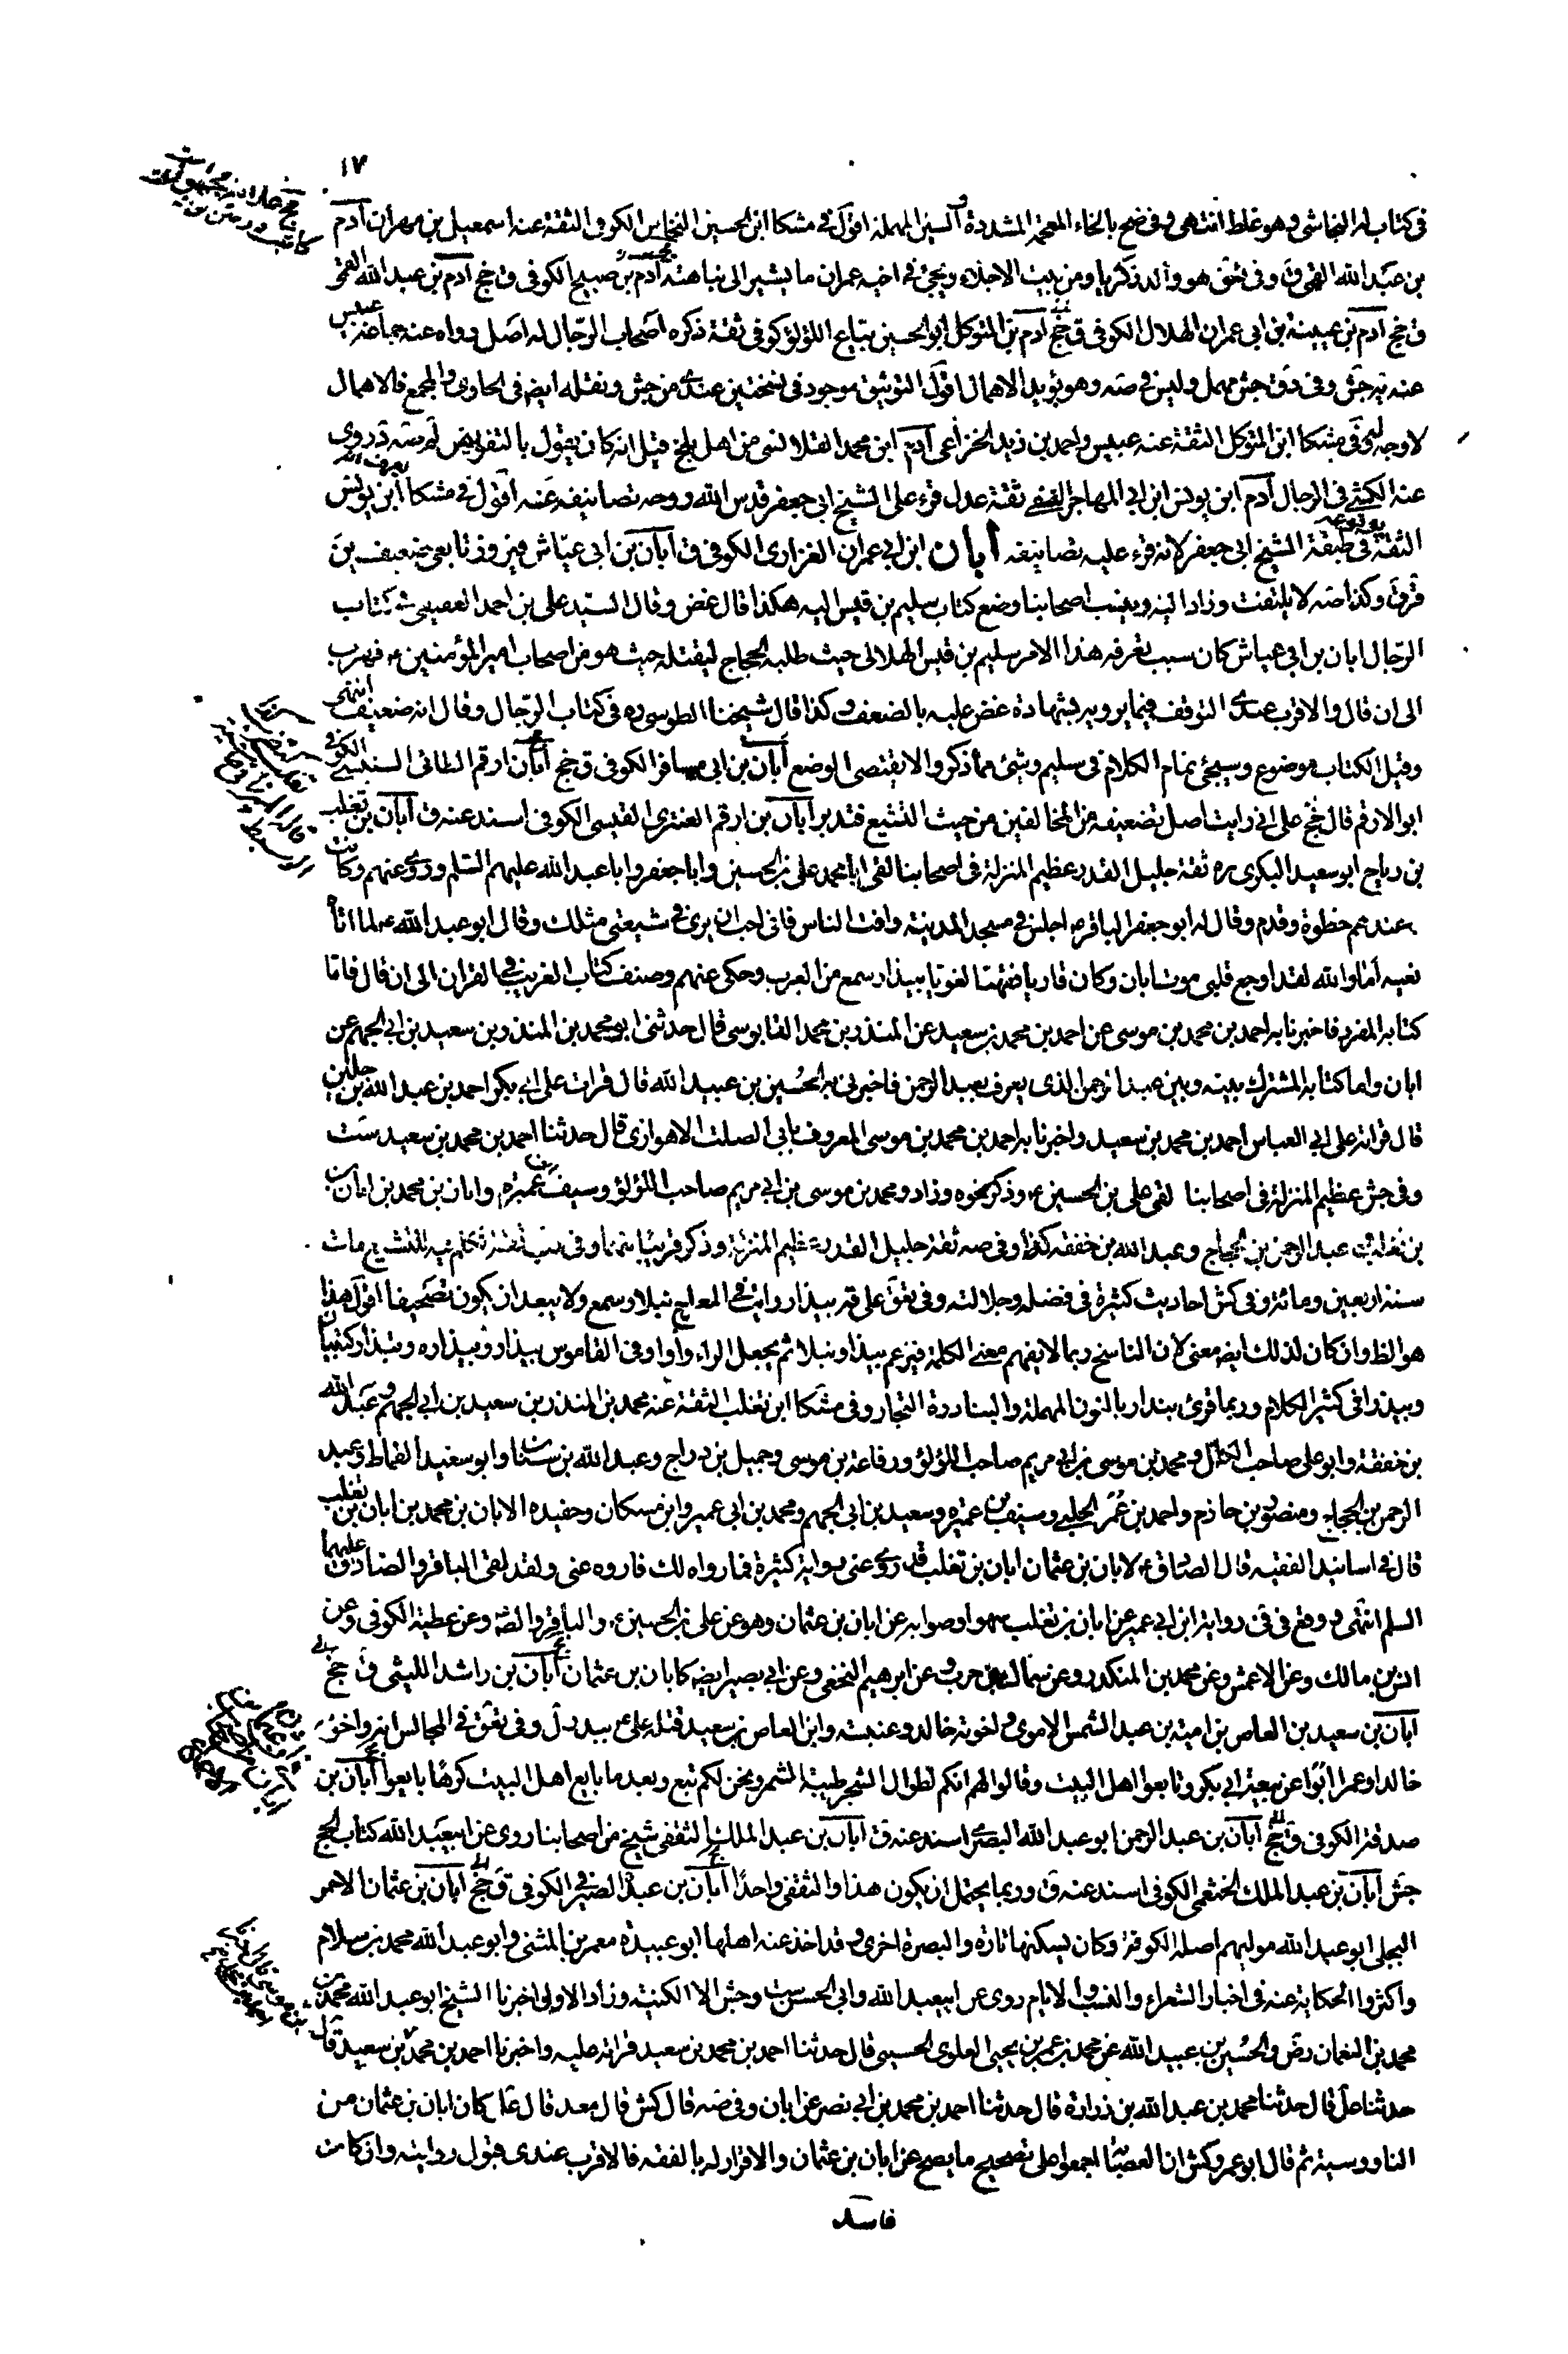 ١٧
فى كتاب له النجاشى وهو غلط انتهى وفى ضح بالخاء المعجمة المشددة والسين المهملة اقول فى مشكا ابن الحسين النخاس الكوفى الثقة عنه اسمعيل بن مهران آدم
بن عبد الله القمى ق وفى تعق هو والد زكريا ومن بيت الاجلاء ويجئ فى اخيه عمران ما يشير الى نباهته آدم بن صبيح الكوفى ق جخ آدم بن عبد الله القمى
ق جخ آدم بن عيينة بن ابى عمران الهلالى الكوفى ق جخ آدم بن المتوكل ابو الحسين بياع اللؤلؤ كوفى ثقة ذكره اصحاب الرجال له اصل رواه عنه جماعة عبيس
عنه به جش وفى د ق جش مهمل وليس فى صه وهو يؤيد الاهمال اقول التوثيق موجود فى نسختين عندى من جش ونقله ايض فى الحاوى والمجمع فالاهمال
لا وجه له وفى مشكا ابن المتوكل الثقة عنه عبيس واحمد بن زيد الخزاعى آدم ابن محمد القلانسى من اهل بلخ قيل انه كان يقول بالتفويض لم صه د روى
عنه الكشى فى الرجال آدم ابن يونس ابن ابى المهاجر النسفى ثقة عدل قرء على الشيخ ابى جعفر قدس الله روحه تصانيفه عنه اقول فى مشكا ابن يونس
الثقة يعرف بوقوعه فى طبقة الشيخ ابى جعفر لانه قرء عليه تصانيفه أبان ابن ابى عمران الفزارى الكوفى ق أبان بن ابى عياش فيروز تابعى ضعيف ين
قر ق وكذا صه لا يلتفت وزاد اليه وينسب اصحابنا وضع كتاب سليم بن قيس اليه هكذا قال غض وقال السيد على بن احمد العقيقى فى كتاب
الرجال ابان بن ابى عياش كان سبب تعرفه هذا الامر سليم بن قيس الهلالى حيث طلبه الحجاج ليقتله حيث هو من اصحاب امير المؤمنين ع فهرب
الى ان قال والاقرب عندى التوقف فيما يرويه لشهادة غض عليه بالضعف وكذا قال شيخنا الطوسى ره فى كتاب الرجال وقال انه ضعيف انتهى
وقيل الكتاب موضوع وسيجئ تمام الكلام فى سليم وشئ مما ذكروا لا يقتضى الوضع أبان بن ابى مسافر الكوفى ق جخ أبان ارقم الطائى السنبسى الكوفى
ابو الارقم قال جخ على انى رايت اصل تضعيفه من المخالفين من حيث التشيع فتدبر أبان بن ارقم العنزى القيسى الكوفى اسند عنه ق أبان بن تغلب
بن رياح ابو سعيد البكرى ره ثقة جليل القدر عظيم المنزلة فى اصحابنا لقى ابا محمد على بن الحسين وابا جعفر وابا عبد الله عليهم السلم وروى عنهم وكانت
عندهم حظوة وقدم وقال له ابو جعفر الباقر ع اجلس فى مسجد المدينة وافت الناس فانى احب ان يرى فى شيعتى مثلك وقال ابو عبد الله ع لما اتاه
نعيه أما والله لقد اوجع قلبى موت ابان وكان قاريا فقيها لغويا بيذار سمع من العرب وحكى عنهم وصنف كتاب الغريب فى القران الى ان قال فاما
كتابه المفرد فاخبرنا به احمد بن محمد بن موسى عن احمد بن محمد بن سعيد عن المنذر بن محمد القابوسى قال حدثنى ابو محمد بن المنذر بن سعيد بن ابى الجهم عن
ابان واما كتابه المشترك بينه وبين عبد الرحمن الذى يعرف بعبد الرحمن فاخبرنى به الحسين بن عبيد الله قال قرات على ابى بكر احمد بن عبد الله بن جلين
قال قرانه على ابى العباس احمد بن محمد بن سعيد واخبرنا به احمد بن محمد بن موسى المعروف بابى الصلت الاهوازى قال حدثنا احمد بن محمد بن سعيد ست
وفى جش عظيم المنزلة فى اصحابنا لقى على بن الحسين ع وذكر نحوه وزاد ومحمد بن موسى بن ابى مريم صاحب اللؤلؤ وسيف بن عميرة وابان بن محمد بن ابان
بن تغلب عبد الرحمن بن الحجاج وعبد الله بن خفقه كذا وفى صه ثقة جليل القدر عظيم المنزلة وذكر قريبا مما مات
سنة اربعين ومائة وفى كش احاديث كثيرة فى فضله وجلالته وفى تعق على قوله بيذار رايت فى المعراج نبلا وسمع ولا يبعد ان يكون تصحيفا اقول هذا
هو الظ وان كان لذلك ايض معنى لان الناسخ ربما لا يفهم معنى الكلمة فيزعم بيذا ونبلا ثم يجعل الراء واوا وفى القاموس بيذار وبيذاره وتبذار كتبيان
وبيذرانى كثير الكلام وربما قرئ بندار بالنون المهملة والبنادرة التجار وفى مشكا ابن تغلب الثقة عنه محمد بن المنذر بن سعيد بن ابى الجهم وعبد الله
بن خفقة وابو على صاحب الكلل ومحمد بن موسى بن ابى مريم صاحب اللؤلؤ ورفاعة بن موسى وجميل بن دراج وعبد الله بن سنان وابو سعيد القماط وعبد
الرحمن بن الحجاج ومنصور بن حازم واحمد بن عمر الحلبى وسيف بن عميرة وسعيد بن ابى الجهم ومحمد بن ابى عمير وابن مسكان وحفيده الابان بن محمد بن ابان بن تغلب
قال فى اسانيد الفقيه قال الصادق ع لابان بن عثمان ابان بن تغلب قد روى عنى رواية كثيرة فما رواه لك فاروه عنى ولقد لقى الباقر والصادق عليهما
السلم انتهى ووقع فى فى رواية ابن ابى عمير عن ابان بن تغلب سهوا وصوابه عن ابان بن عثمان وهو عن على بن الحسين ع والباقر والصه وعن عطية الكوفى وعن
انس بن مالك وعن الاعمش وعن محمد بن المنكدر وعن سماك بن حرب وعن ابرهيم النخعى وعن ابى بصير ايضه كابان بن عثمان أبان بن راشد الليثى ق جخ
أبان بن سعيد بن العاص بن امية بن عبد الشمس الاموى واخوته خالد وعنبسة وابن العاص بن سعيد قتله على ع ببدر ل وفى تعق فى المجالس انه واخويه
خالدا وعمرا ابوا عن بيعة ابى بكر وتابعوا اهل البيت وقالوا لهم انكم لطوال الشجر طيبة الثمر ونحن لكم تبع وبعد ما بايع اهل البيت كرها بايعوا أبان بن
صدقة الكوفى ق جخ أبان بن عبد الرحمن ابو عبد الله البصرى اسند عنه ق أبان بن عبد الملك الثقفى شيخ من اصحابنا روى عن ابيعبد الله كتاب الحج
جش أبان بن عبد الملك الخثعمى الكوفى اسند عنه ق وربما يحتمل ان يكون هذا والثقفى واحدا أبان بن عبدة الصيرفى الكوفى ق جخ أبان بن عثمان الاحمر
البجلى ابو عبد الله مولهم اصله الكوفة وكان يسكنها تارة والبصرة اخرى وقد اخذ عنه اهلها ابو عبيدة معمر بن المثنى وابو عبد الله محمد بن سلام
واكثروا الحكاية عنه فى اخبار الشعراء والنسب والايام روى عن ابيعبد الله وابى الحسن ست وجش الا الكنية وزاد الاولى اخبرنا الشيخ ابو عبد الله محمد بن
محمد بن النعمان رض والحسين بن عبيد الله عن محمد بن عمر بن يحيى العلوى الحسينى قال حدثنا احمد بن محمد بن سعيد قرائة عليه واخبرنا احمد بن محمد بن سعيد قال
حدثنا على قال حدثنا محمد بن عبد الله بن زرارة قال حدثنا احمد بن محمد بن ابى نصر عن ابان وفى صه قال كش قال محمد قال على كان ابان بن عثمان من
الناووسية ثم قال ابو عمرو كش ان العصابة اجمعوا على تصحيح ما يصح عن ابان بن عثمان والاقرار له بالفقه فالاقرب عندى قبول روايته وان كان
فاسد